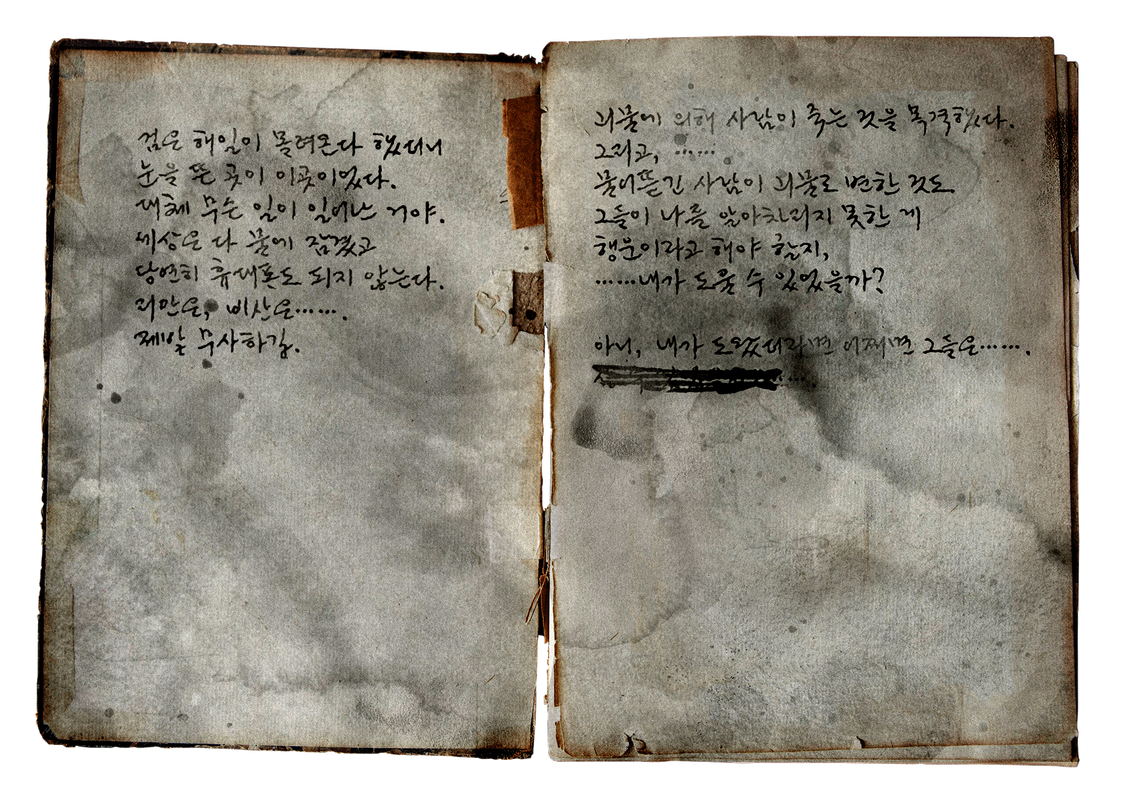 검은 해일이 몰려온다 했더니
눈을 뜬 곳이 이곳이었다.
대체 무슨 일이 일어난 거야.
세상은 다 물에 잠겼고
당연히 휴대폰도 되지 않는다.
리안은, 비산은…….
제발 무사하길.
괴물에 의해 사람이 죽는 것을 목격했다.
그리고, ……
물어뜯긴 사람이 괴물로 변한 것도
그들이 나를 알아차리지 못한 게
행운이라고 해야 할지,
……내가 도울 수 있었을까?
아니, 내가 도왔더라면 어쩌면 그들은…….